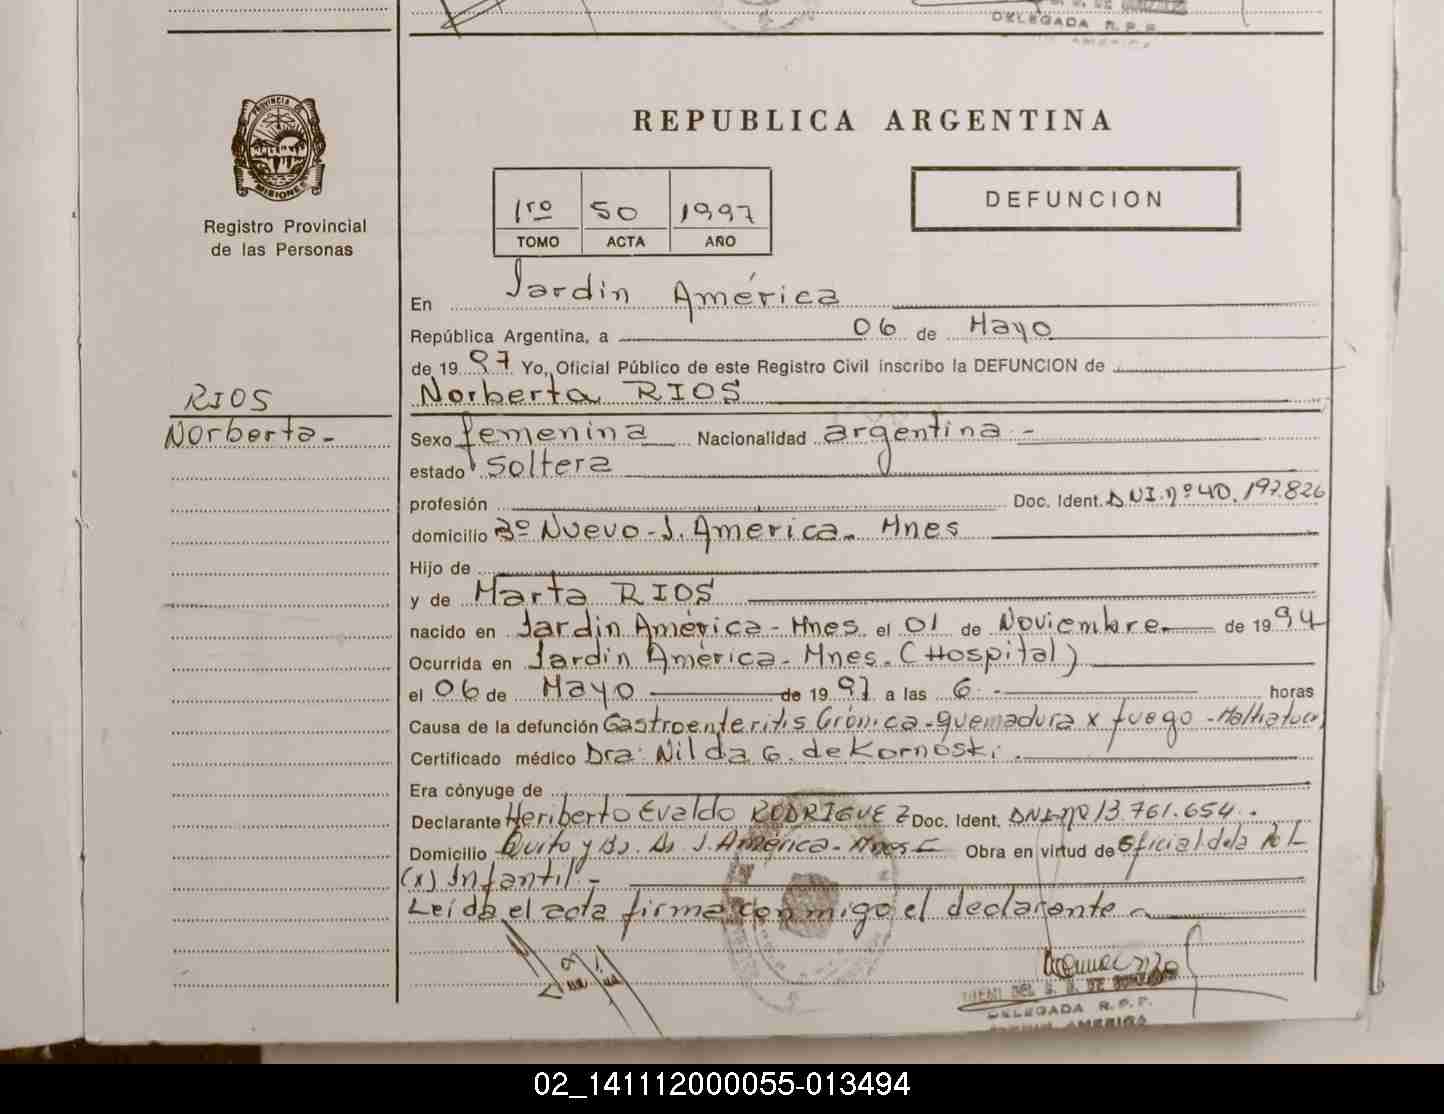 DELEGADA R.P.P.
PROVINCIA DE
MISIONES
Registro Provincial
de las Personas
REPUBLICA ARGENTINA
1ro 50 1997
TOMO ACTA AÑO
DEFUNCION
En Jardín América
República Argentina, a 06 de Mayo
de 1997 Yo, Oficial Público de este Registro Civil inscribo la DEFUNCION de
RIOS
Norberta RIOS
Norberta-
Sexo femenina Nacionalidad argentina -
estado soltera
profesión Doc. Ident. DNI. nº 40.197.826
domicilio Bº Nuevo-J. América. Mnes
Hijo de
y de Marta RIOS
nacido en Jardín América- Mnes. el 01 de Noviembre de 1994
Ocurrida en Jardín América- Mnes. (Hospital)
el 06 de Mayo de 1997 a las 6 - horas
Causa de la defunción Gastroenteritis Crónica-quemadura x fuego -Maltrato(x)
Certificado médico Dra: Nilda G. de Kornoski.
Era cónyuge de
Declarante Heriberto Evaldo RODRIGUEZ Doc. Ident. DNI-nº 13.761.654.
Domicilio Quito y Bs. As J. América- Mnes- Obra en virtud de Oficial de la Pol
(x) Infantil -
Leída el acta firma conmigo el declarante
DELEGADA R.P.P.
AMERICA
02_141112000055-013494